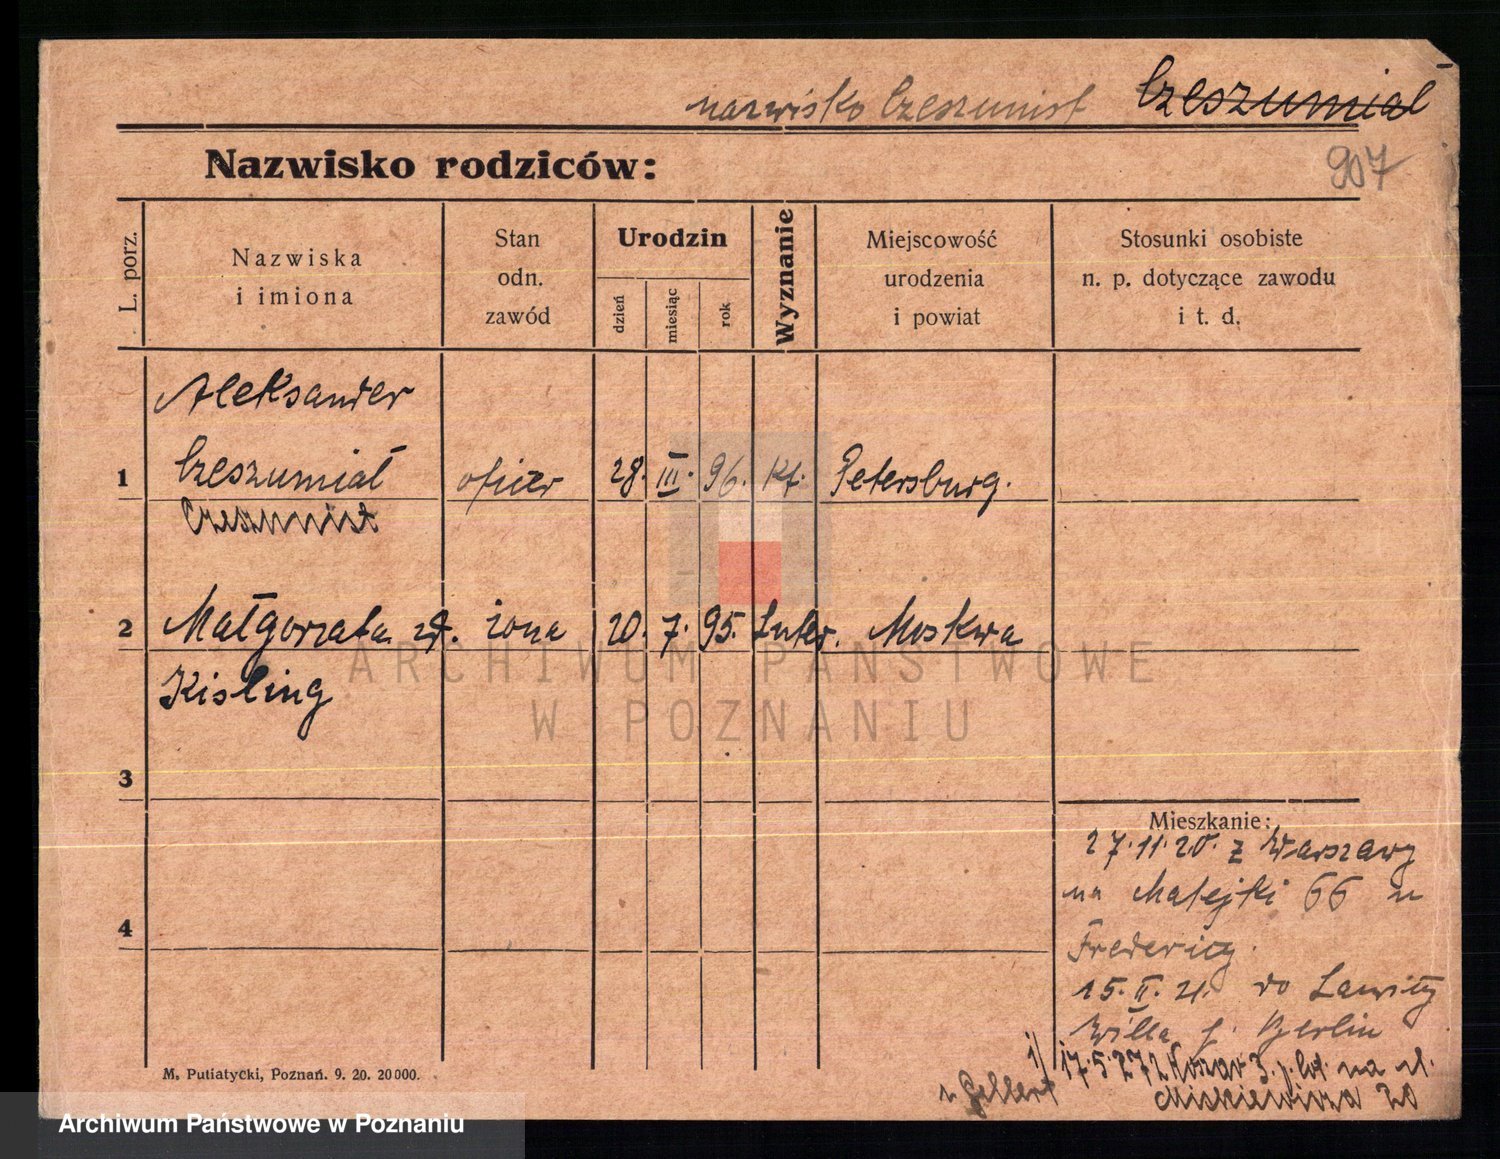 nazwisko Czeszumist Czeszumiał
907
Nazwisko rodziców:
L. porz.
Nazwiska
i imiona
Stan
odn.
zawód
Urodzin
dzień
miesiąc
rok
Wyznanie
Miejscowość
urodzenia
i powiat
Stosunki osobiste
n. p. dotyczące zawodu
i t. d.
Aleksander
1 Czeszumiał oficer 28. III. 96. kt. Petersburg.
Czeszumist
2 Małgorzata żona 20. 7. 95. Luter. Moskwa
Kisling
3
Mieszkanie:
27.11.20. z Warszawy
na Matejki 66 u
4
Fredericy.
15. II. 21. do Ławicy
Willa p. Berlin
17.5.27 z Koszar 3. p. lot. na ul.
Mickiewicza 20
u Gellert
M. Putiatycki, Poznań. 9. 20. 20000.
ARCHIWUM PAŃSTWOWE
W POZNANIU
Archiwum Państwowe w Poznaniu